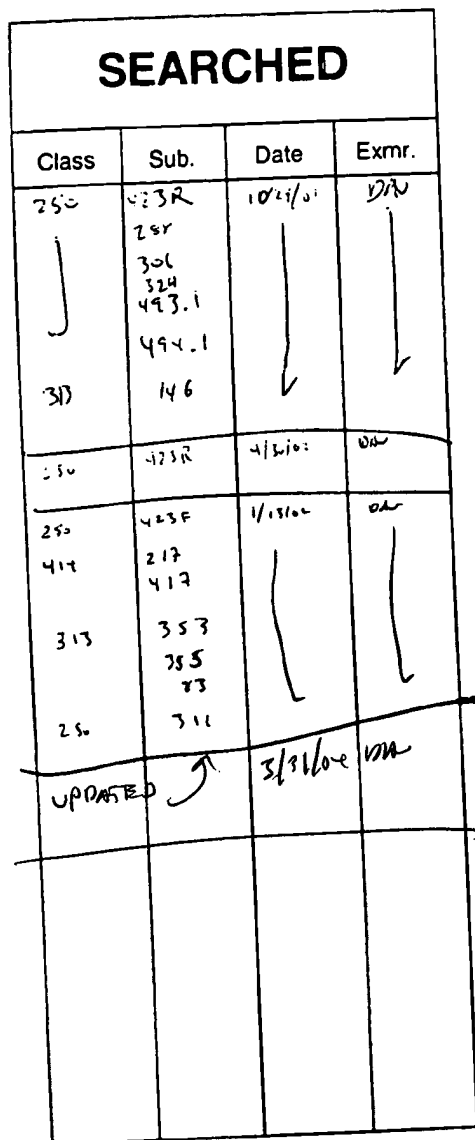 SEARCHED
Class Sub. Date Exmr.
250 423R 10/21/01
306
324
493.1
494.1
313 146
250 423R 4/30/02
250 423F
414 217
417
313 353
355
83
250 311
UPDATED 3/31/04